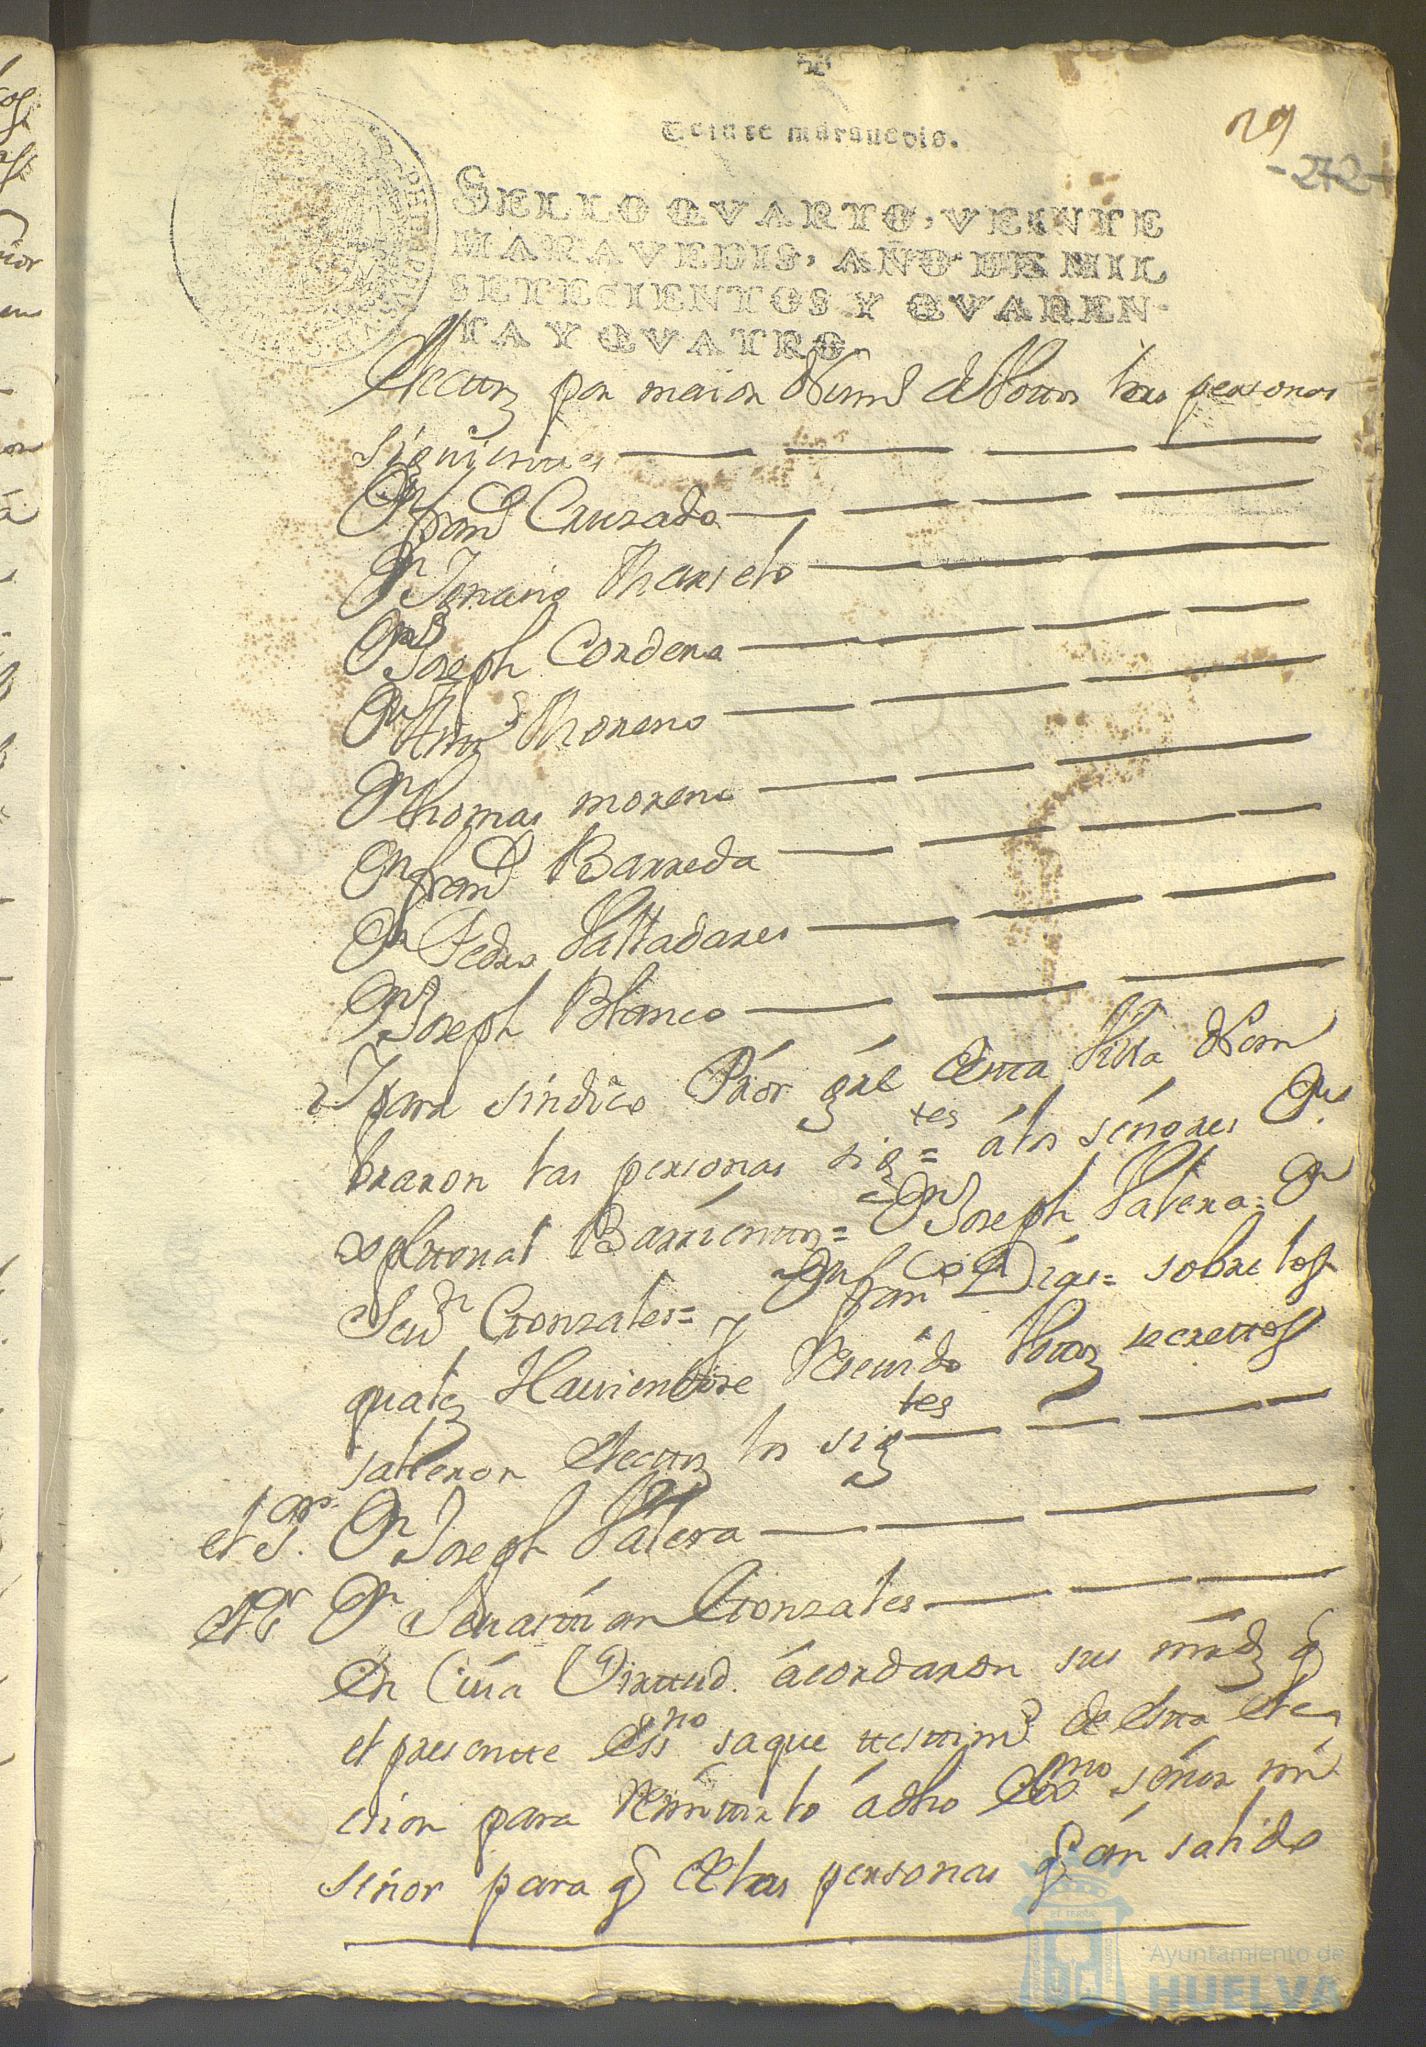 Veinte maravedis.
29
-272-
SELLO QVARTO, VEINTE
MARAVEDIS, AÑO DE MIL
SETECIENTOS Y QVAREN-
TA Y QVATRO.
Electtos por maior Numº de Vottos las personas
siguientes
Dn Franco Cruzado
Dn Ignacio
Dn Joseph Cordero
Dn Anttº Moreno
Dn Thomas moreno
Dn Franco Barreda
Dn Pedro Valladares
Dn Joseph Blanco
Y para sindico Prór grâl de estta Villa Nom
braron las personas sigtes = á los señores Dn
Barrientos = Dn Joseph Valera = Dn
Seun Gonzales = Dn Franco Dias = sobre los
quales Hauiendose Reciuido Vottos secrettos
salieron electtos los sigtes
el Pº Dn Joseph Valera
Dn Seuasttian Gonzales
En Cuia Virttud acordaron sus mrds q
el presentte essno saque ttesttimº de estta elec
cion para Remittirlo á dho exmo señor mi
señor para q de las personas q án salido
Ayuntamiento de
HUELVA